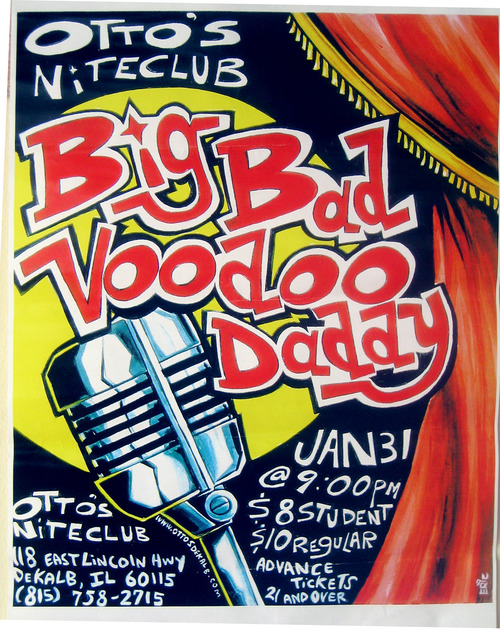 OTTO'S
NiTECLUB
Big Bad
Voodoo
Daddy
JAN 31
@ 9:00PM
$8 STUDENT
$10 REGULAR
ADVANCE
TICKETS
21 AND OVER
OTTO'S
NiTECLUB
118 EAST LINCOLN HWY
DEKALB, IL 60115
(815) 758-2715
WWW.OTTOSDEKALB.COM